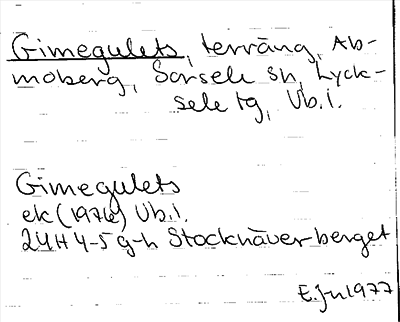 Gimegulets, terräng, Ab-
moberg, Sorsele sn, Lyck-
sele tg, Vb.l.
Gimegulets
ek (1976) Vb.l.
24H 4-5 g-h Stocknäverberget
E. Jn 1977